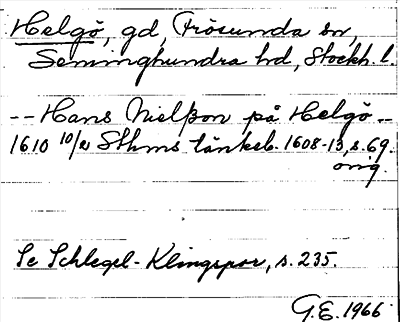 Helgö, gd, Frösunda sn,
Seminghundra hd, Stockh. l.
-- Hans Nielßon på Helgö --
1610 10/2 Sthms tänkeb. 1608-13, s. 69.
orig.
Se Schlegel-Klingspor, s. 235.
G.E. 1966